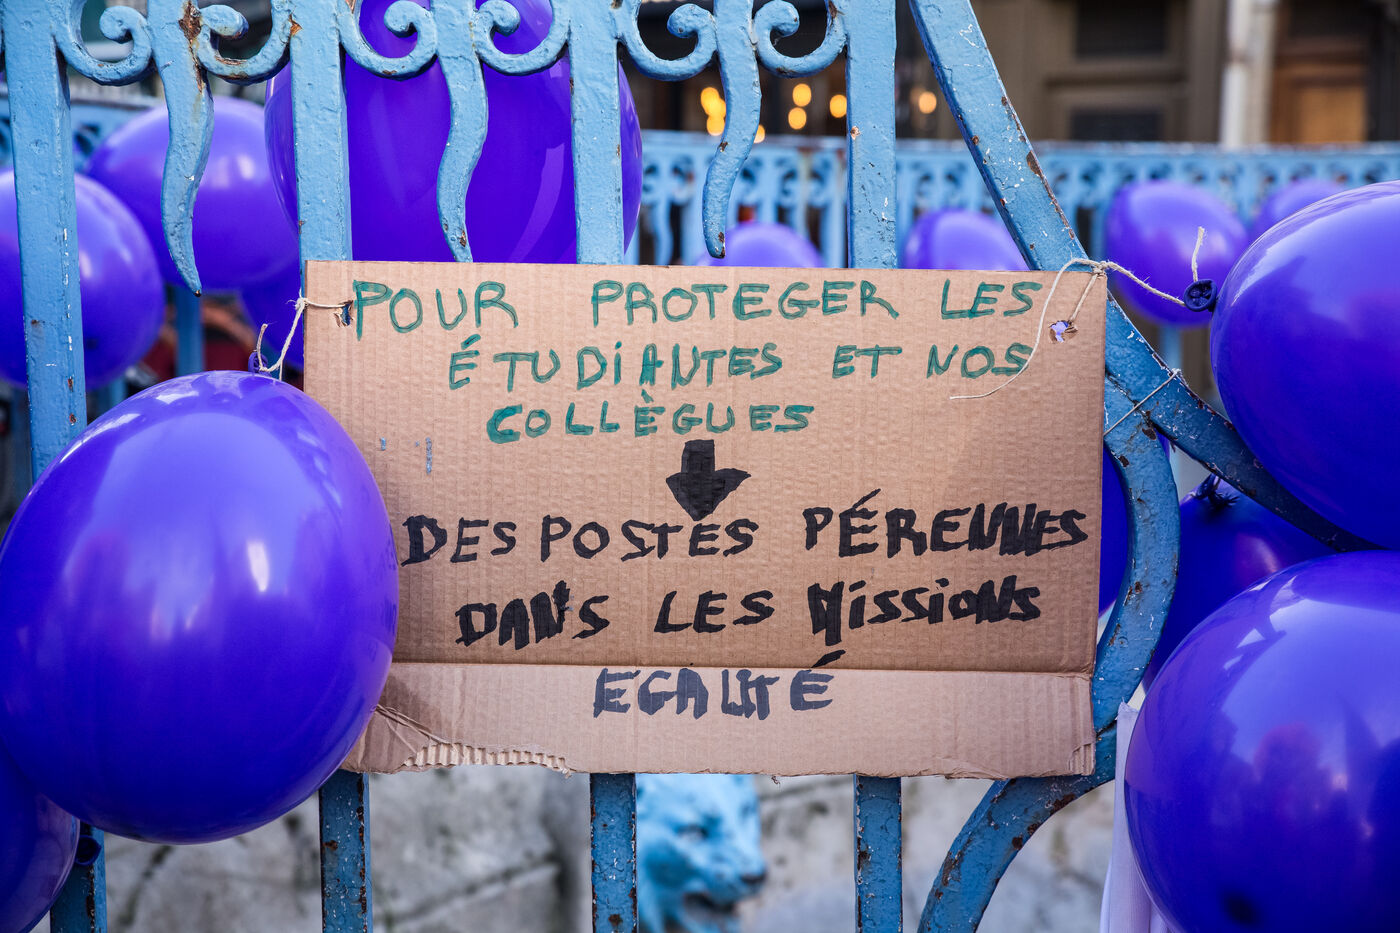 POUR PROTEGER LES
ÉTUDIANTES ET NOS
COLLÈGUES
DES POSTES PÉRENNES
DANS LES MISSIONS
EGALITÉ